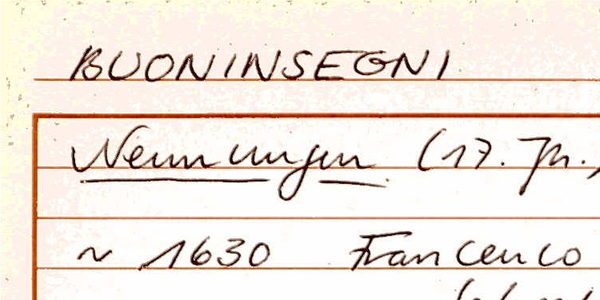 BUONINSEGNI
Nennungen (17. Jh.,
~ 1630 Francenco